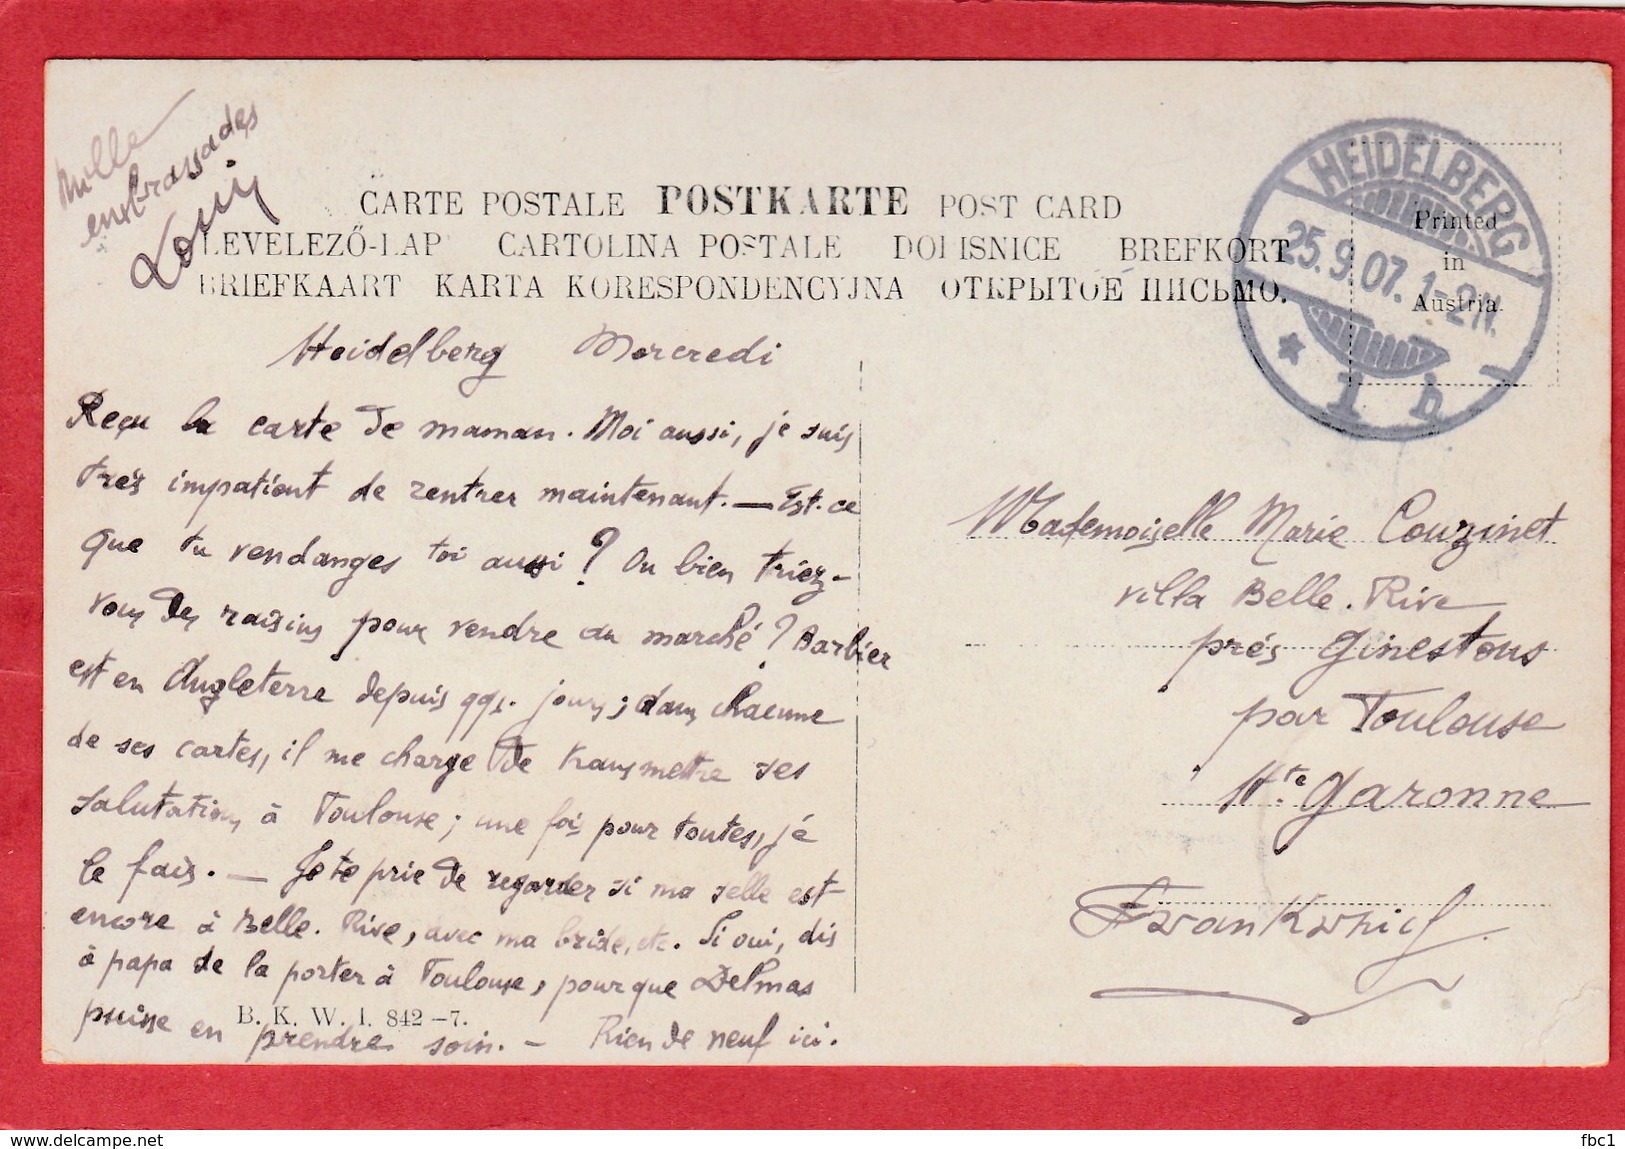 Mille
embrassades
Louis
CARTE POSTALE POSTKARTE POST CARD
LEVELEZŐ-LAP CARTOLINA POSTALE DOPISNICE BREFKORT
BRIEFKAART KARTA KORESPONDENCYJNA ОТКРЫТОЕ ПИСЬМО.
HEIDELBERG
25.9.07. 1-2N.
* 1 b
Printed
in
Austria
Heidelberg Mercredi
Reçu la carte de maman. Moi aussi, je suis
très impatient de rentrer maintenant. — Est-ce
que tu vendanges toi aussi ? Ou bien triez-
vous des raisins pour vendre au marché ? Barbier
est en Angleterre depuis qqs. jours ; dans chacune
de ses cartes, il me charge de transmettre ses
salutations à Toulouse ; une fois pour toutes, je
le fais. — Je te prie de regarder si ma selle est
encore à Belle-Rive, avec ma bride, etc. Si oui, dis
à papa de la porter à Toulouse, pour que Delmas
puisse en prendre soin. — Rien de neuf ici.
B. K. W. I. 842-7.
Mademoiselle Marie Couzinet
villa Belle-Rive
près Ginestous
par Toulouse
Hte Garonne
Frankreich
delcampe.net
fbc1